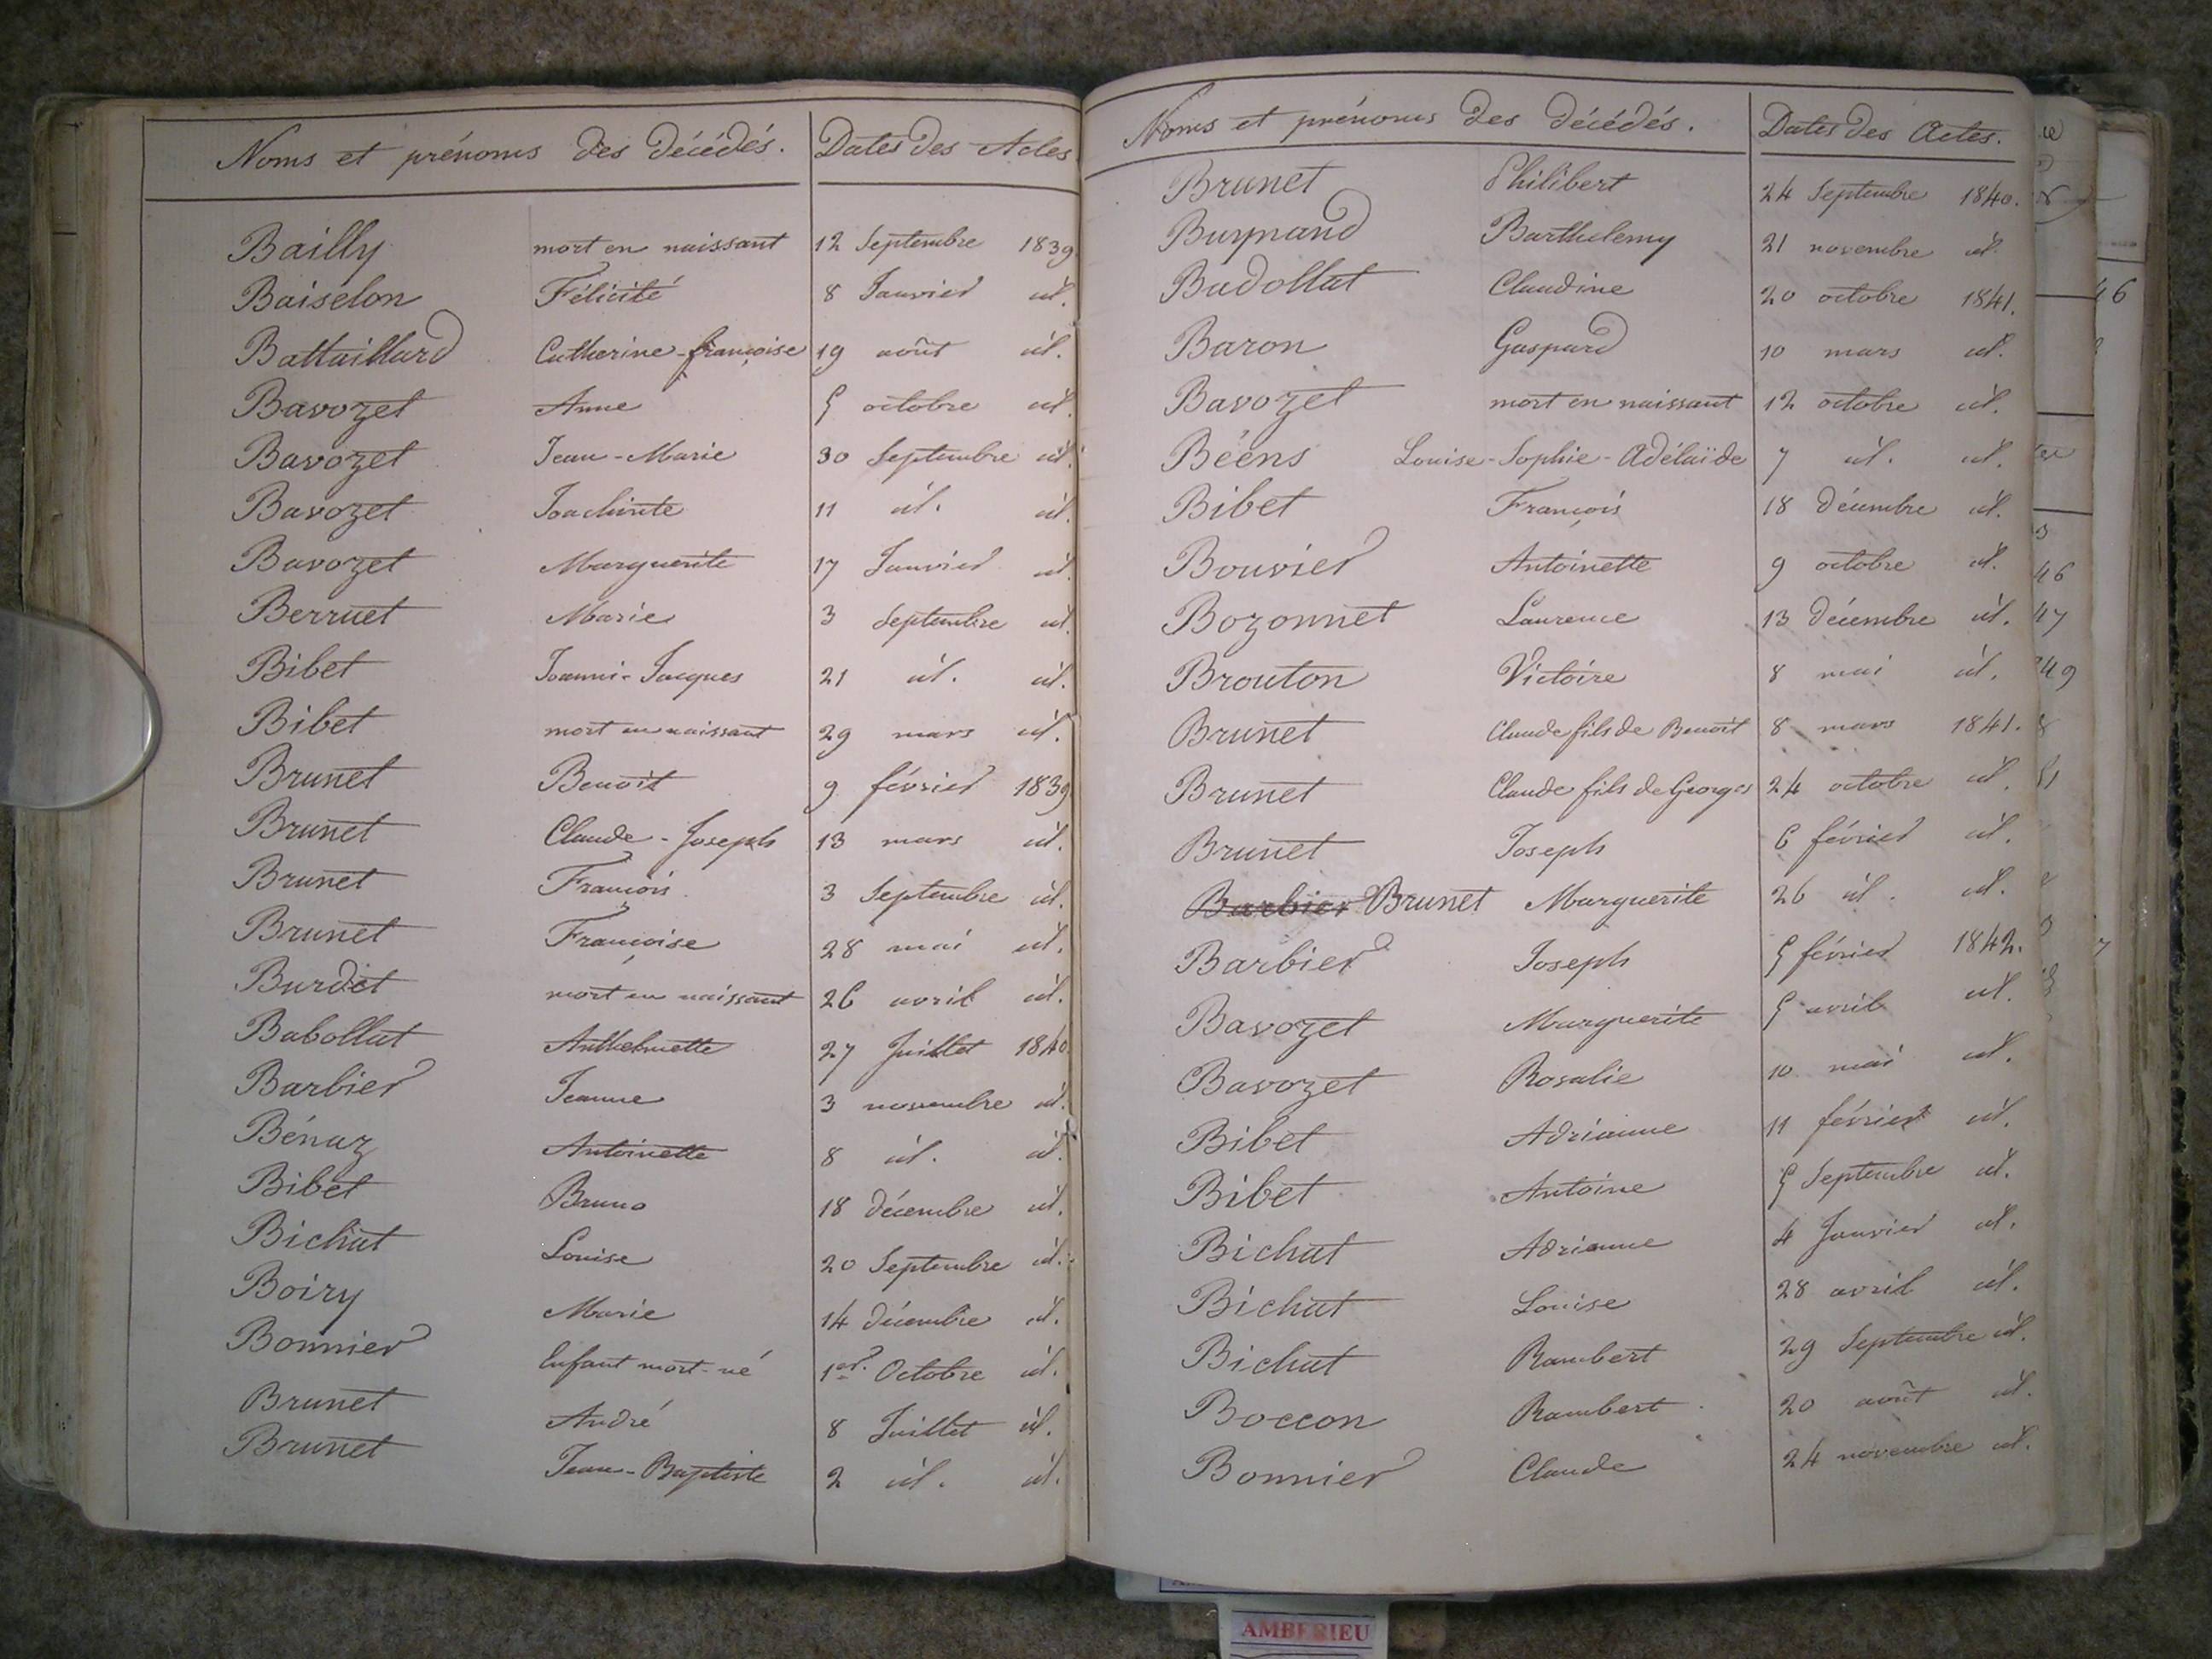 Noms et prénoms des décédés. Dates des Actes
Bailly mort en naissant 12 Septembre 1839
Baiselon Félicité 8 Janvier id.
Battaillard Catherine-françoise 19 août id.
Bavozet Anne 5 octobre id.
Bavozet Jean-Marie 30 Septembre id.
Bavozet Joachinte 11 id. id.
Bavozet Marguerite 17 Janvier id.
Berruet Marie 3 Septembre id.
Bibet Joanni-Jacques 21 id. id.
Bibet mort en naissant 29 mars id.
Brunet Benoit 9 février 1839
Brunet Claude-Joseph 13 mars id.
Brunet François 3 Septembre id.
Brunet Françoise 28 mai id.
Burdet mort en naissant 26 avril id.
Babollat Anthelmette 27 Juillet 1840.
Barbier Jeanne 3 novembre id.
Bénaz Antoinette 8 id. id.
Bibet Bruno 18 décembre id.
Bichat Louise 20 Septembre id.
Boiry Marie 14 décembre id.
Bonnier Enfant mort-né 1er. Octobre id.
Brunet André 8 Juillet id.
Brunet Jean-Baptiste 2 id. id.
Noms et prénoms des décédés. Dates des Actes.
Brunet Philibert 24 Septembre 1840.
Buynand Barthelemy 21 novembre id.
Badollat Claudine 20 octobre 1841.
Baron Gaspard 10 mars id.
Bavozet mort en naissant 12 octobre id.
Béens Louise-Sophie-Adélaïde 7 id. id.
Bibet François 18 décembre id.
Bouvier Antoinette 9 octobre id.
Bozonnet Laurence 13 décembre id.
Brouton Victoire 8 mai id.
Brunet Claude fils de Benoit 8 mars 1841.
Brunet Claude fils de Georges 24 octobre id.
Brunet Joseph 6 février id.
Barbier Brunet Marguerite 26 id. id.
Barbier Joseph 5 février 1842.
Bavozet Marguerite 5 avril id.
Bavozet Rosalie 10 mai id.
Bibet Adrianne 11 février id.
Bibet Antoine 5 Septembre id.
Bichat Adrianne 4 Janvier id.
Bichat Louise 28 avril id.
Bichat Rambert 29 Septembre id.
Boccon Rambert 20 août id.
Bonnier Claude 24 novembre id.
46
46
47
49
51
AMBERIEU